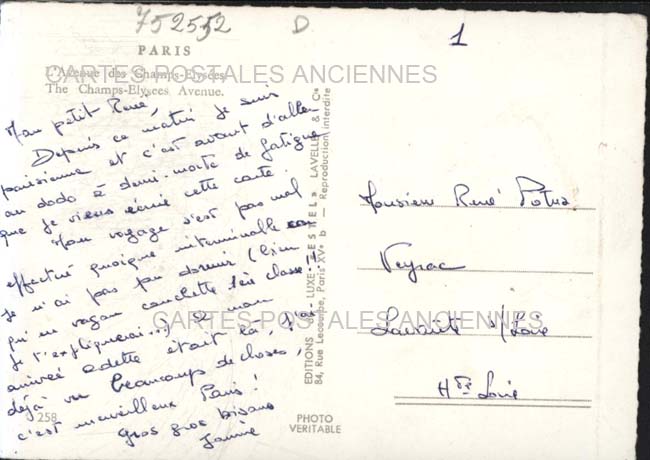 752552
D
1
PARIS
L'Avenue des Champs-Elysées.
The Champs-Elysees Avenue.
CARTES POSTALES ANCIENNES
Mon petit René,
Depuis ce matin je suis
parisienne et c'est avant d'aller
au dodo à demi-morte de fatigue
que je viens écrire cette carte.
Mon voyage s'est pas mal
effectué quoique interminable car
je n'ai pas pu dormir (bien
qu'en wagon couchette 1ère classe!!
je t'expliquerai...) à mon
arrivée Odette était là, j'ai
déjà vu beaucoup de choses,
c'est merveilleux Paris!
Gros gros bisous
Janine
258
EDITIONS DE LUXE « ESTEL » LAVELLE & Cie
84, Rue Lecombe, Paris XVe b — Reproduction interdite
PHOTO
VERITABLE
Monsieur René
Veyrac
s/Loire
Hte Loire
CARTES POSTALES ANCIENNES